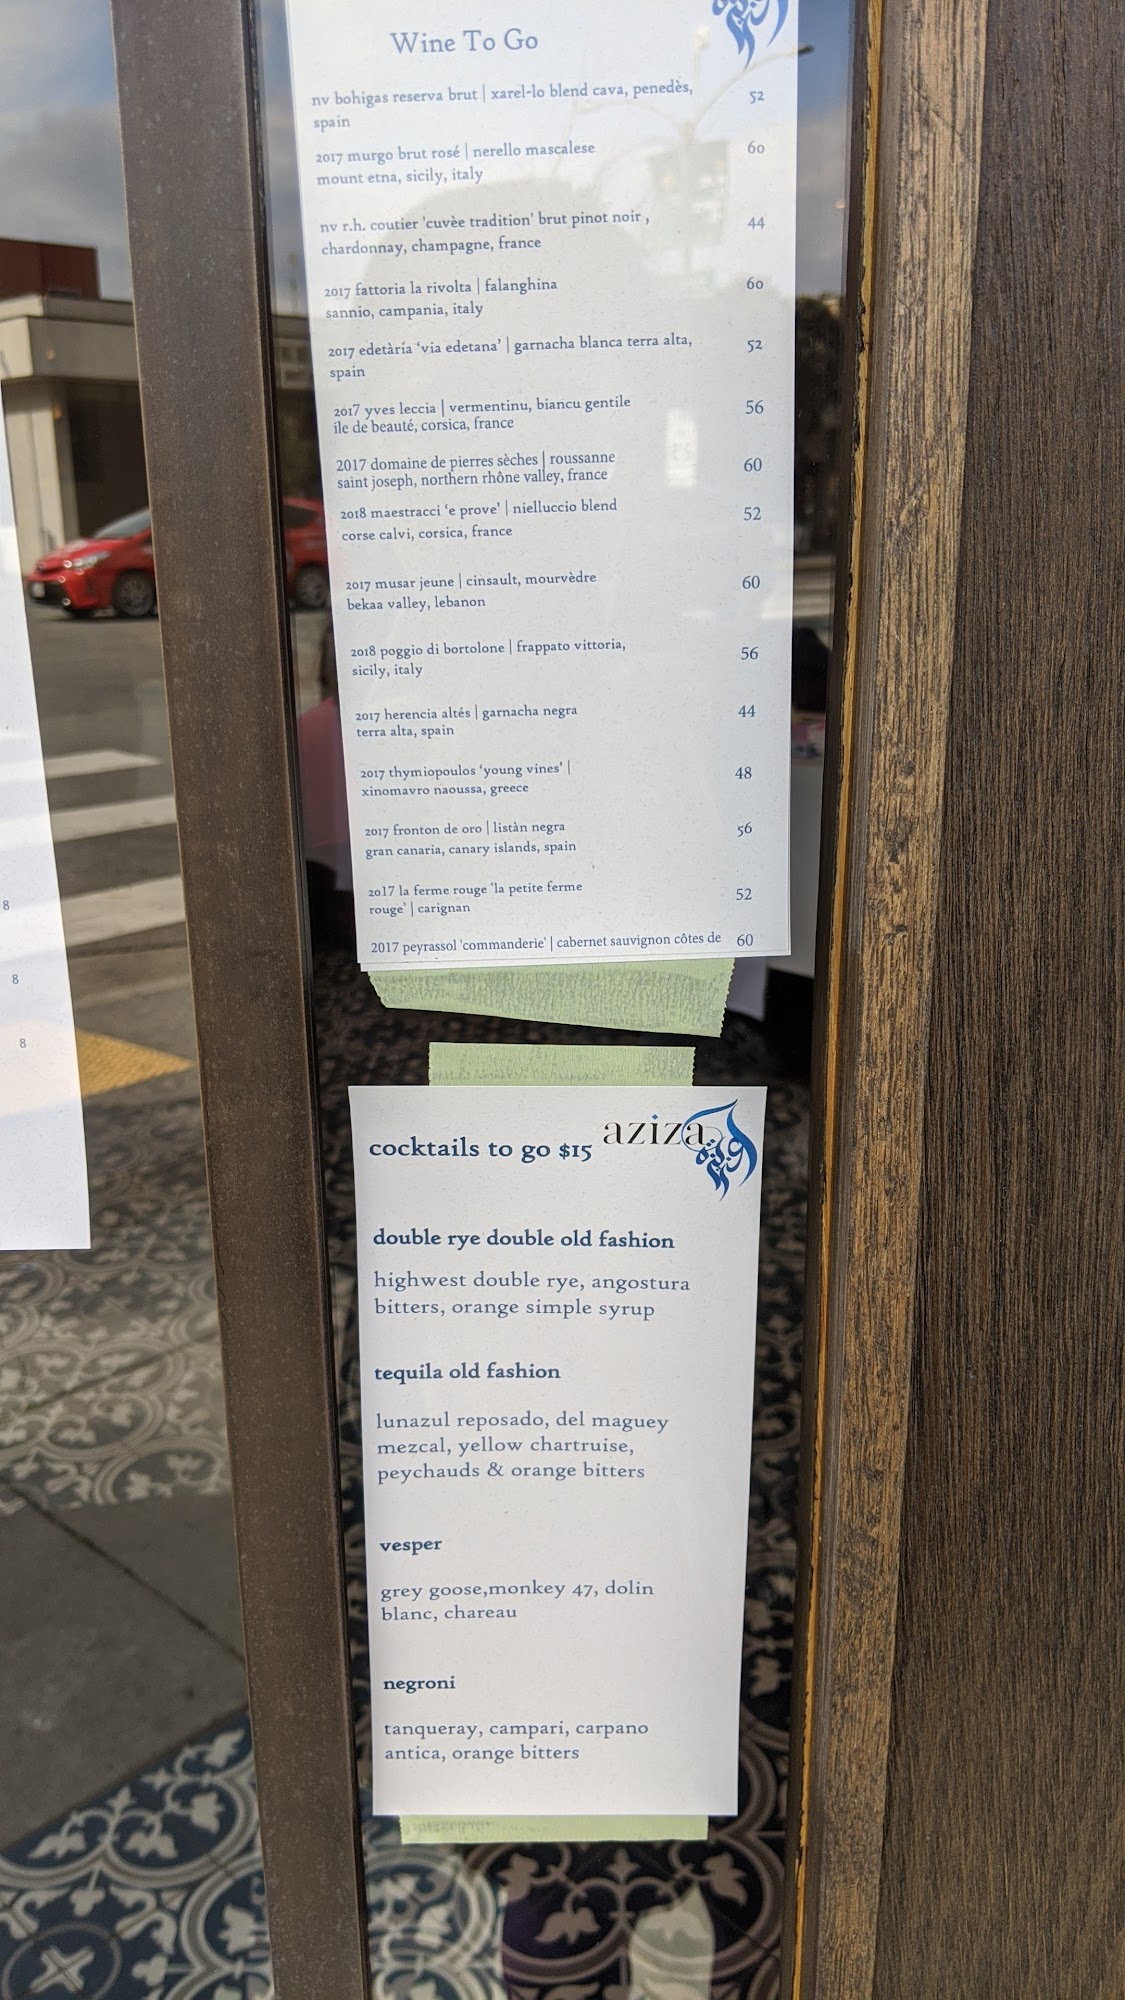 Wine To Go
nv bohigas reserva brut | xarel-lo blend cava, penedès, 52
spain
2017 murgo brut rosé | nerello mascalese 60
mount etna, sicily, italy
nv r.h. coutier 'cuvèe tradition' brut pinot noir , 44
chardonnay, champagne, france
2017 fattoria la rivolta | falanghina 60
sannio, campania, italy
2017 edetàría ‘via edetana’ | garnacha blanca terra alta, 52
spain
2017 yves leccia | vermentinu, biancu gentile 56
île de beauté, corsica, france
2017 domaine de pierres sèches | roussanne 60
saint joseph, northern rhône valley, france
2018 maestracci ‘e prove’ | nielluccio blend 52
corse calvi, corsica, france
2017 musar jeune | cinsault, mourvèdre 60
bekaa valley, lebanon
2018 poggio di bortolone | frappato vittoria, 56
sicily, italy
2017 herencia altés | garnacha negra 44
terra alta, spain
2017 thymiopoulos ‘young vines’ | 48
xinomavro naoussa, greece
2017 fronton de oro | listàn negra 56
gran canaria, canary islands, spain
2017 la ferme rouge 'la petite ferme 52
rouge' | carignan
2017 peyrassol 'commanderie' | cabernet sauvignon côtes de 60
8
8
8
cocktails to go $15 aziza
double rye double old fashion
highwest double rye, angostura
bitters, orange simple syrup
tequila old fashion
lunazul reposado, del maguey
mezcal, yellow chartruise,
peychauds & orange bitters
vesper
grey goose,monkey 47, dolin
blanc, chareau
negroni
tanqueray, campari, carpano
antica, orange bitters